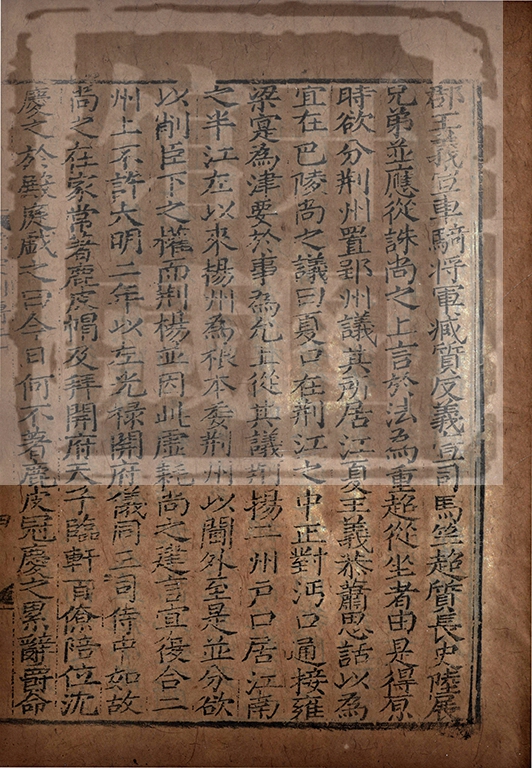 郡王義宣車騎将軍臧質反義宣司馬竺超質長史陸展
兄弟並應從誅尚之上言於法為重超從坐者由是得原
時欲分荆州置郢州議其所居江夏王義恭蕭思話以為
宜在巴陵尚之議曰夏口在荆江之中正對沔口通接雍
梁寔為津要於事為允上從其議荆揚二州戸口居江南
之半江左以來楊州為根本委荆州以閫外至是並分欲
以削臣下之權而荆楊並因此虚耗尚之建言宜復合二
州上不許大明二年以左光禄開府儀同三司侍中如故
尚之在家常著鹿皮帽及拜開府天子臨軒百僚陪位沈
慶之於殿庭戯之曰今日何不著鹿皮冠慶之累辭爵命